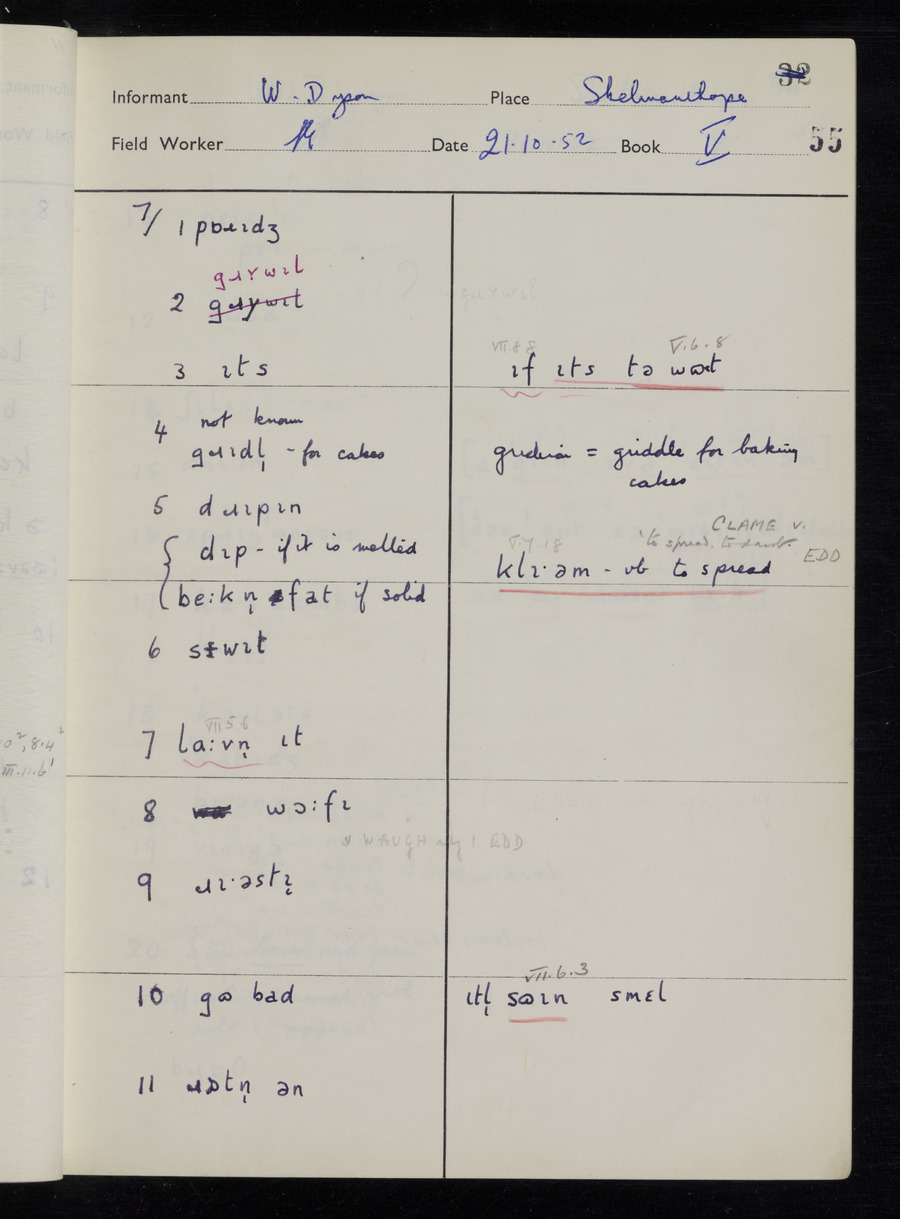 32
Informant W. Dyson Place Skelmanthorpe
Field Worker Date 21.10.52 Book V 55
7/ 1 pɒɹɪdʒ
gɹɤwɪl
2
3 ɪts
VII.8.8 V.6.8
ɪf ɪts tə wɒt
4 not known
gɹɪdl̩ - for cakes
= griddle for baking
cakes
5 dɹɪpɪn
dɪp - if it is melted
be:kn̩ fat if solid
CLAME v.
V.7.18 'to spread, to daub.' EDD
klɪ·əm - vb to spread
6 sɪwɪt
VII 5.6
7 la:vn̩ ɪt
8 wɔ:fɪ
WAUGHy 1 EDD
9 ɹɪ·əstɪ̨
10 gɷ bad
VII.6.3
ɪtl̩ sɷɪn smɛl
11 ɹɒtn̩ ən